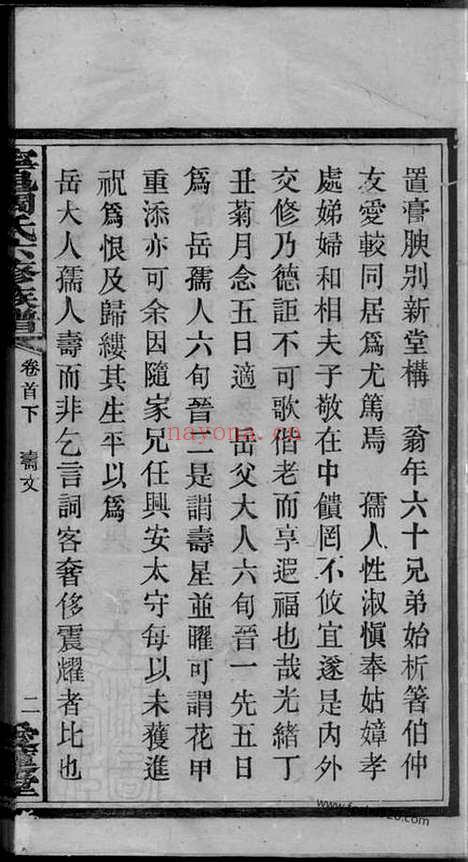 置膏腴別新堂構　翁年六十兄弟始析箸伯仲
友愛較同居爲尤篤焉　孺人性淑慎奉姑嫜孝
處娣婦和相夫子敬在中饋罔不攸宜遂是內外
交修乃德詎不可歌偕老而享遐福也哉光緒丁
丑菊月念五日適　岳父大人六旬晉一先五日
爲　岳孺人六旬晉二是謂壽星並曜可謂花甲
重添亦可余因隨家兄任興安太守每以未獲進
祝爲恨及歸縷其生平以爲
岳大人孺人壽而非乞言詞客奢侈震耀者比也
周氏六修族譜
卷首下　壽文
二
nayona.cn